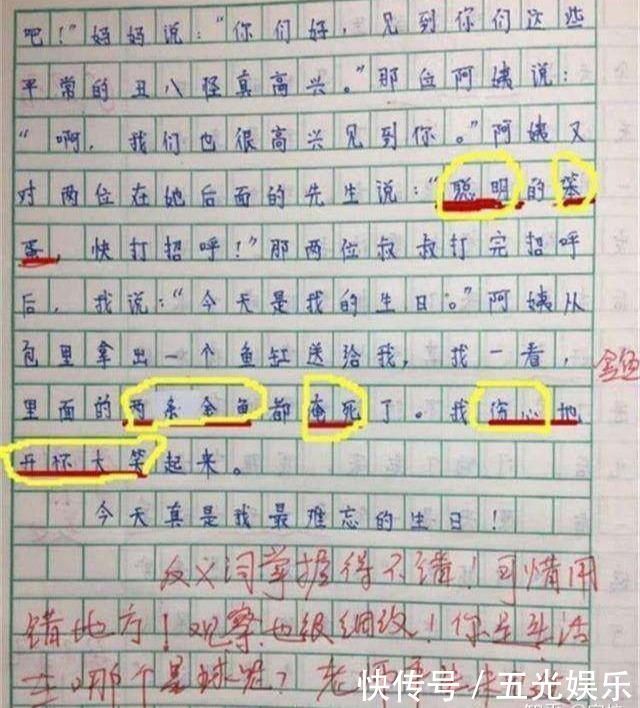 吧！”妈妈说：“你们好，见到你们这些
平常的丑八怪真高兴。”那位阿姨说：
“啊，我们也很高兴见到你。”阿姨又
对两位在她后面的先生说：“聪明的笨
蛋，快打招呼！”那两位叔叔打完招呼
后，我说：“今天是我的生日。”阿姨从
包里拿出一个鱼缸送给我，我一看，
金鱼
里面的两条金鱼都淹死了。我伤心地
开怀大笑起来。
今天真是我最难忘的生日！
反义词掌握得不错！可惜用
错地方！观察也很细致！你是生活
在哪个星球呢？老师
快传号／五光娱乐
知乎